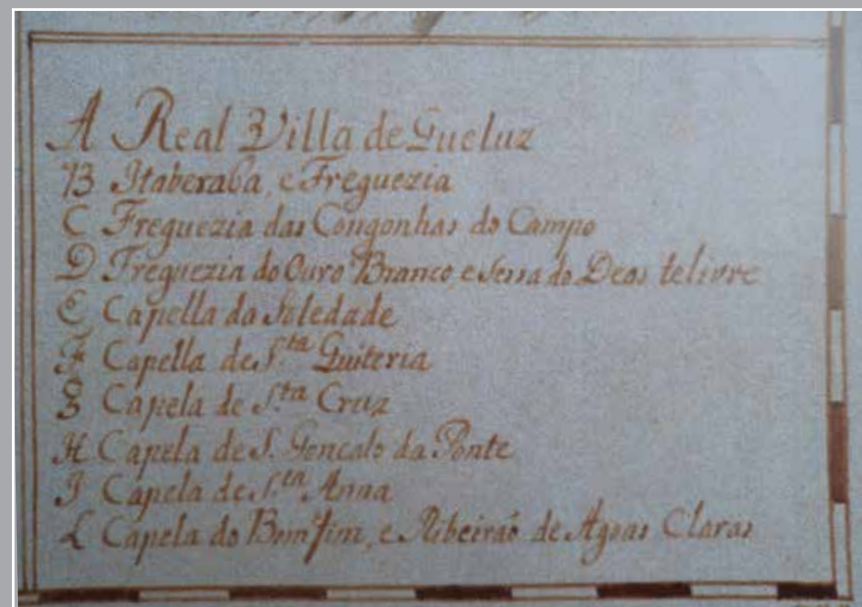 A Real Villa de Queluz
B Itaberaba, e Freguezia
C Freguezia das Congonhas do Campo
D Freguezia do Ouro Branco, e Serra do Deos te livre
E Capella da Soledade
F Capella de S.ta Quiteria
G Capela de S.ta Cruz
H Capela de S. Goncalo da Ponte
I Capela de S.ta Anna
L Capela do Bom fim, e Ribeiraõ de Agoas Claras